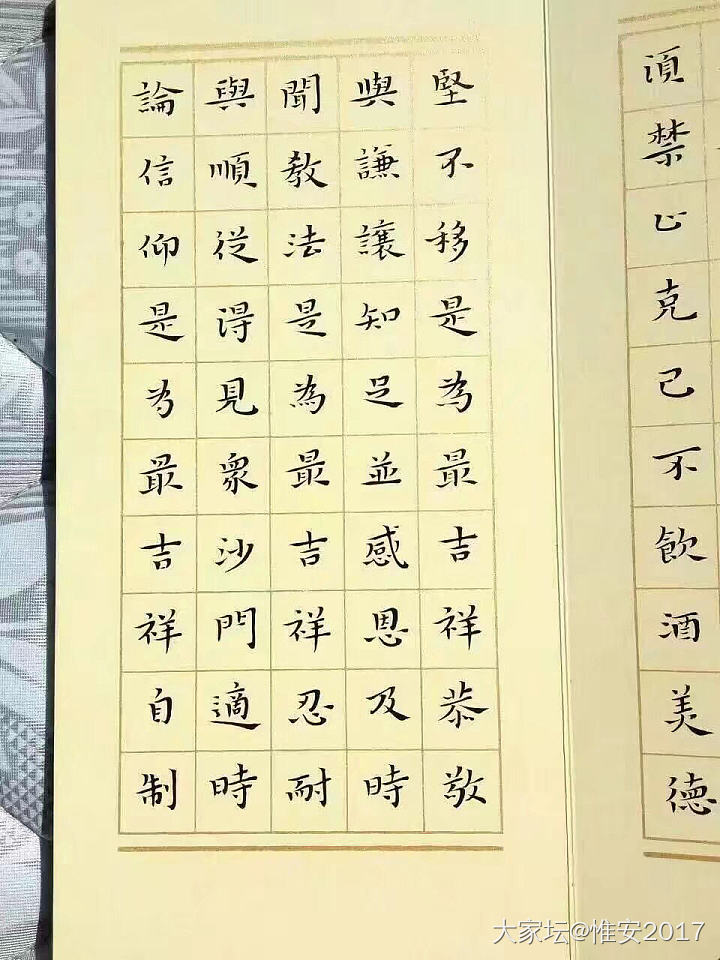 須禁止克己不飲酒美德
堅不移是為最吉祥恭敬
與謙讓知足並感恩及時
聞教法是為最吉祥忍耐
與順從得見眾沙門適時
論信仰是為最吉祥自制
大家坛@惟安2017